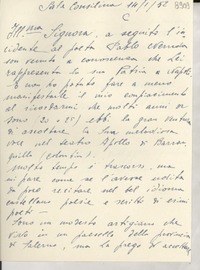 Sala Consilina 14/1/52
8909
Ill.ma Signora, a seguito l'in-
cidente al poeta Pablo Neruda
son venuto a conoscenza che Lei
rappresenta la sua Patria a Napoli
e non ho potuto fare a meno
manifestarle il mio compiacimento
al ricordarmi che molti anni or
sono (20-25) ebbi la gran ventura
di ascoltare la Sua melodiosa
voce nel teatro Apollo di Barran-
quilla (Colombia).
molto tempo è trascorso, ma
mi pare come se l'avessi udita
da poco recitare nel bel idioma
castellano poesie e scritti di esimi
poeti.
Sono un modesto artigiano che
vive in un paesello della provincia
di Salerno, ma la prego di accettare